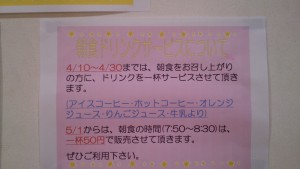 朝食ドリンクサービスについて
4/10～4/30までは、朝食をお召し上がり
の方に、ドリンクを一杯サービスさせて頂き
ます。
(アイスコーヒー・ホットコーヒー・オレンジ
ジュース・りんごジュース・牛乳より)
5/1からは、朝食の時間(7:50～8:30)は、
一杯50円で販売させて頂きます。
ぜひご利用下さい。